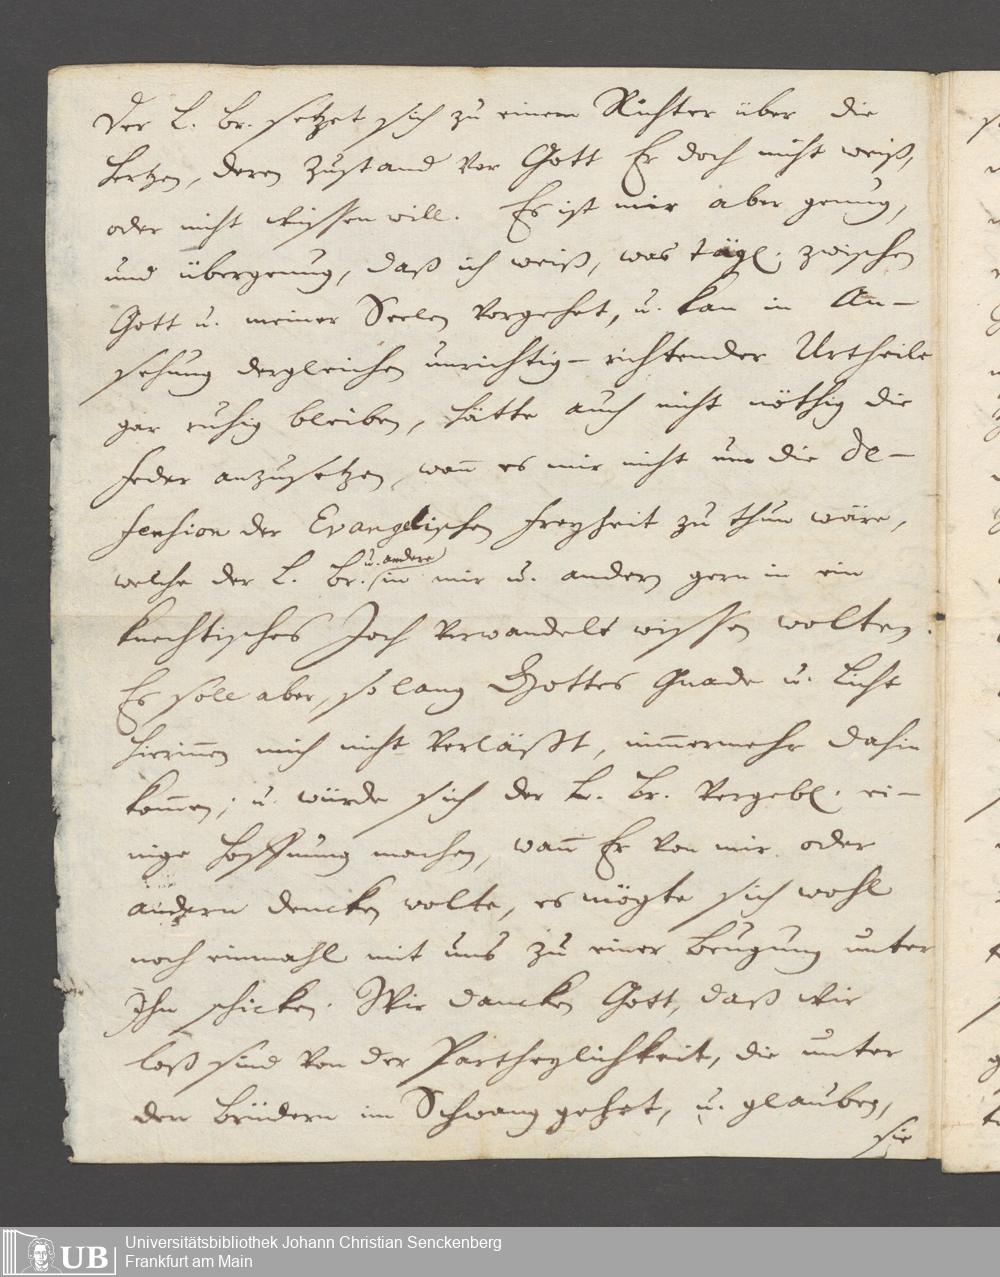 Der L. Br. setzet sich zu einem Richter über die
Hertzen, deren Zustand vor Gott Er doch nicht weiß,
oder nicht wissen will. Es ist mir aber genug,
und übergenug, daß ich weiß, was tägl. zwischen
Gott u. meiner Seelen vorgehet, u. kan in An-
sehung dergleichen unrichtig-richtender Urtheile
gar ruhig bleiben, hätte auch nicht nöthig die
Feder anzusetzen, wann es mir nicht um die De-
fension der Evangelischen Freyheit zu thun wäre,
welche der L. Br. u. andere in mir u. andern gern in ein
knechtisches Joch verwandelt wissen wolten.
Es soll aber, so lang Gottes Gnade u. Licht
hierinnen mich nicht verläßt, nimmermehr dahin
kommen; u. würde sich der L. Br. vergebl. ei-
nige Hoffnung machen, wann Er von mir oder
andern dencken wolte, es mögte sich wohl
noch einmahl mit uns zu einer Beugung unter
Ihn schicken. Wir dancken Gott, daß wir
loß sind von der Partheylichkeit, die unter
den Brüdern im Schwang gehet, u. glauben,
sie
Universitätsbibliothek Johann Christian Senckenberg
Frankfurt am Main
UB